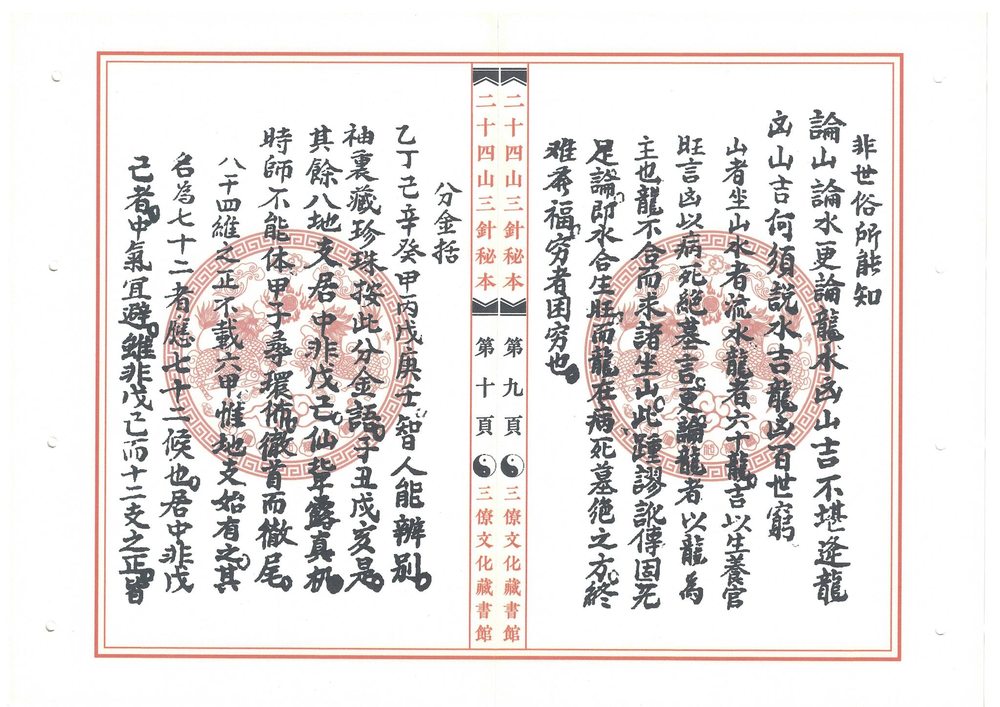 非世俗所能知
論山論水更論龍水凶山吉不堪逢龍
凶山吉何須説水吉龍凶百世窮
山者坐山水者流水龍者六十龍吉以生養官
旺言凶以病死絕墓言更論龍者以龍為
主也龍不合而來諸坐山此踵謬訛傳固无
足論即水合生旺而龍在病死墓絕之方終
难發福窮者困穷也
二十四山三針秘本 第九頁 三僚文化藏書館
二十四山三針秘本 第十頁 三僚文化藏書館
分金括
乙丁己辛癸甲丙戊庚壬智人能辨别
袖裏藏珍珠按此分金語子丑戌亥是
其餘八地支居中非戊己仙翬露真机
時師不能体甲子尋環佈徹首而徹尾
八干四維之正不載六甲惟地支始有之其
名為七十二者應七十二候也居中非戊
己者中氣宜避雖非戊己而十二支之正皆